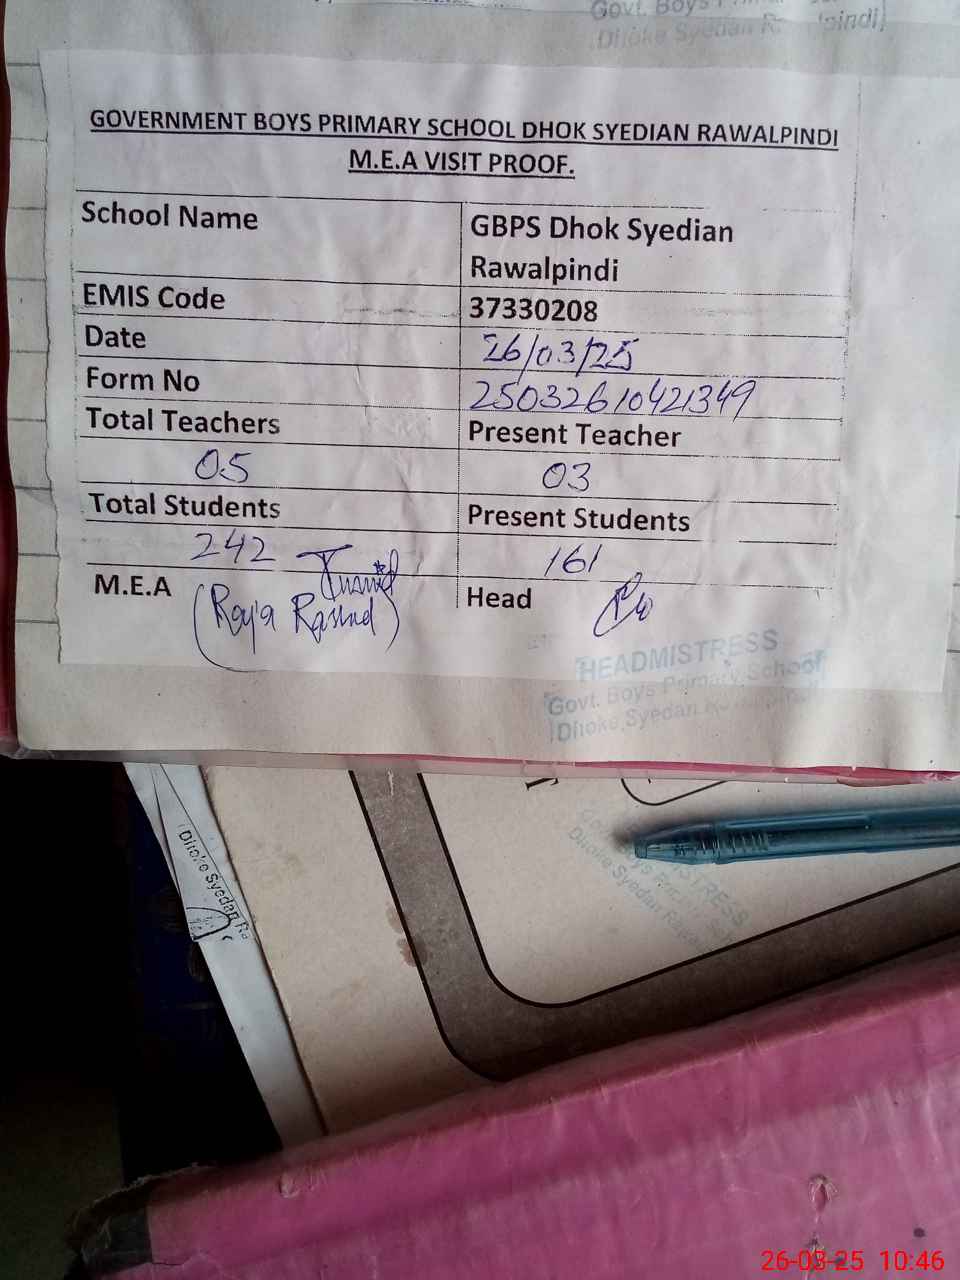 Govt. Boys
Dhoke Syedan
pindi)
GOVERNMENT BOYS PRIMARY SCHOOL DHOK SYEDIAN RAWALPINDI
M.E.A VISIT PROOF.
School Name GBPS Dhok Syedian
Rawalpindi
EMIS Code 37330208
Date 26/03/25
Form No 25032610421349
Total Teachers Present Teacher
05 03
Total Students Present Students
242 161
M.E.A (Raja Rashid) Head
HEADMISTRESS
Govt. Boys Primary School
Dhoke Syedan Rawalpindi
Dhoke Syedan Ra
26-03-25 10:46